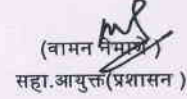 (वामन नेमाणे)
सहा.आयुक्त(प्रशासन )